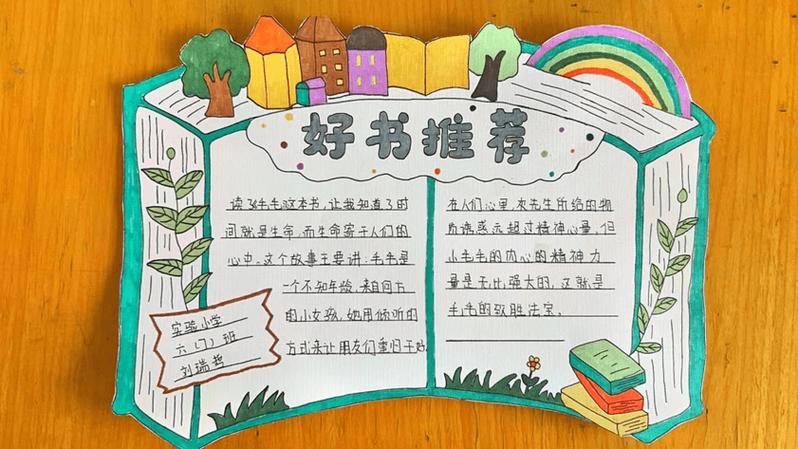 好书推荐
读了毛毛这本书，让我知道了时
间就是生命，而生命寄于人们的
心中。这个故事主要讲：毛毛是
一个不知年龄，来自何方
的小女孩，她用倾听的
方式来让朋友们重归于好。
实验小学
六（1）班
刘瑞哲
在人们心里，灰先生所给的物
质诱惑远超过精神力量，但
小毛毛的内心的精神力
量是无比强大的，这就是
毛毛的致胜法宝。